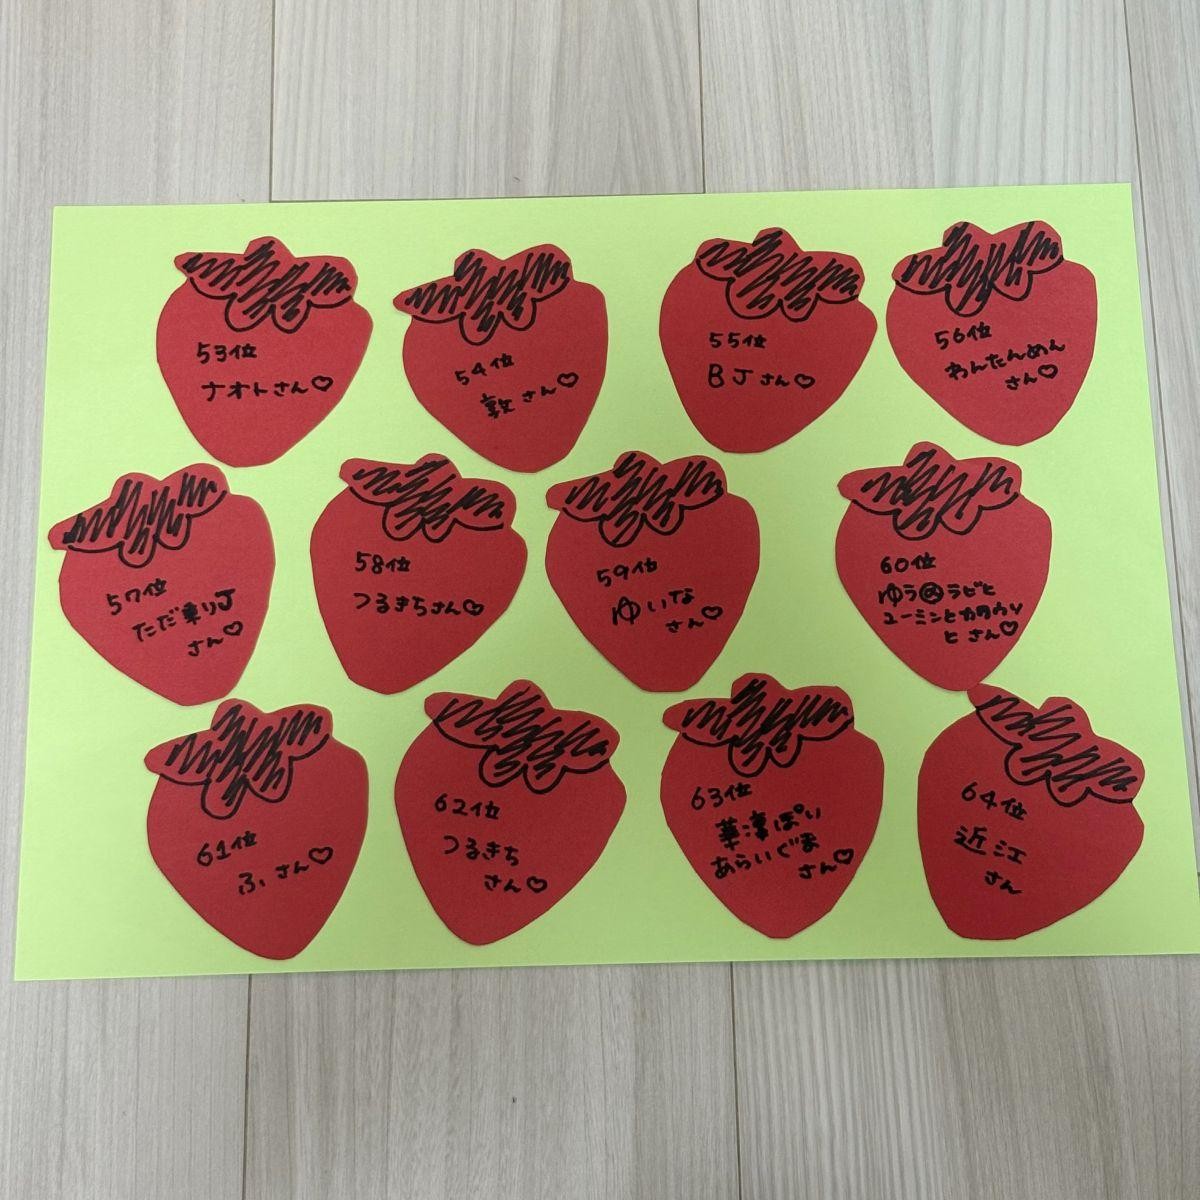 53位
ナオトさん♡
54位
敦さん♡
55位
BJさん♡
56位
わんたんめん
さん♡
57位
ただ乗りJ
さん♡
58位
つるきちさん♡
59位
ゆいな
さん♡
60位
ゆう㋨ラビと
ユーミンとカタウソ
とさん♡
61位
ふぃさん♡
62位
つるきち
さん♡
63位
華凜ぽい
あらいぐま
さん♡
64位
近江
さん